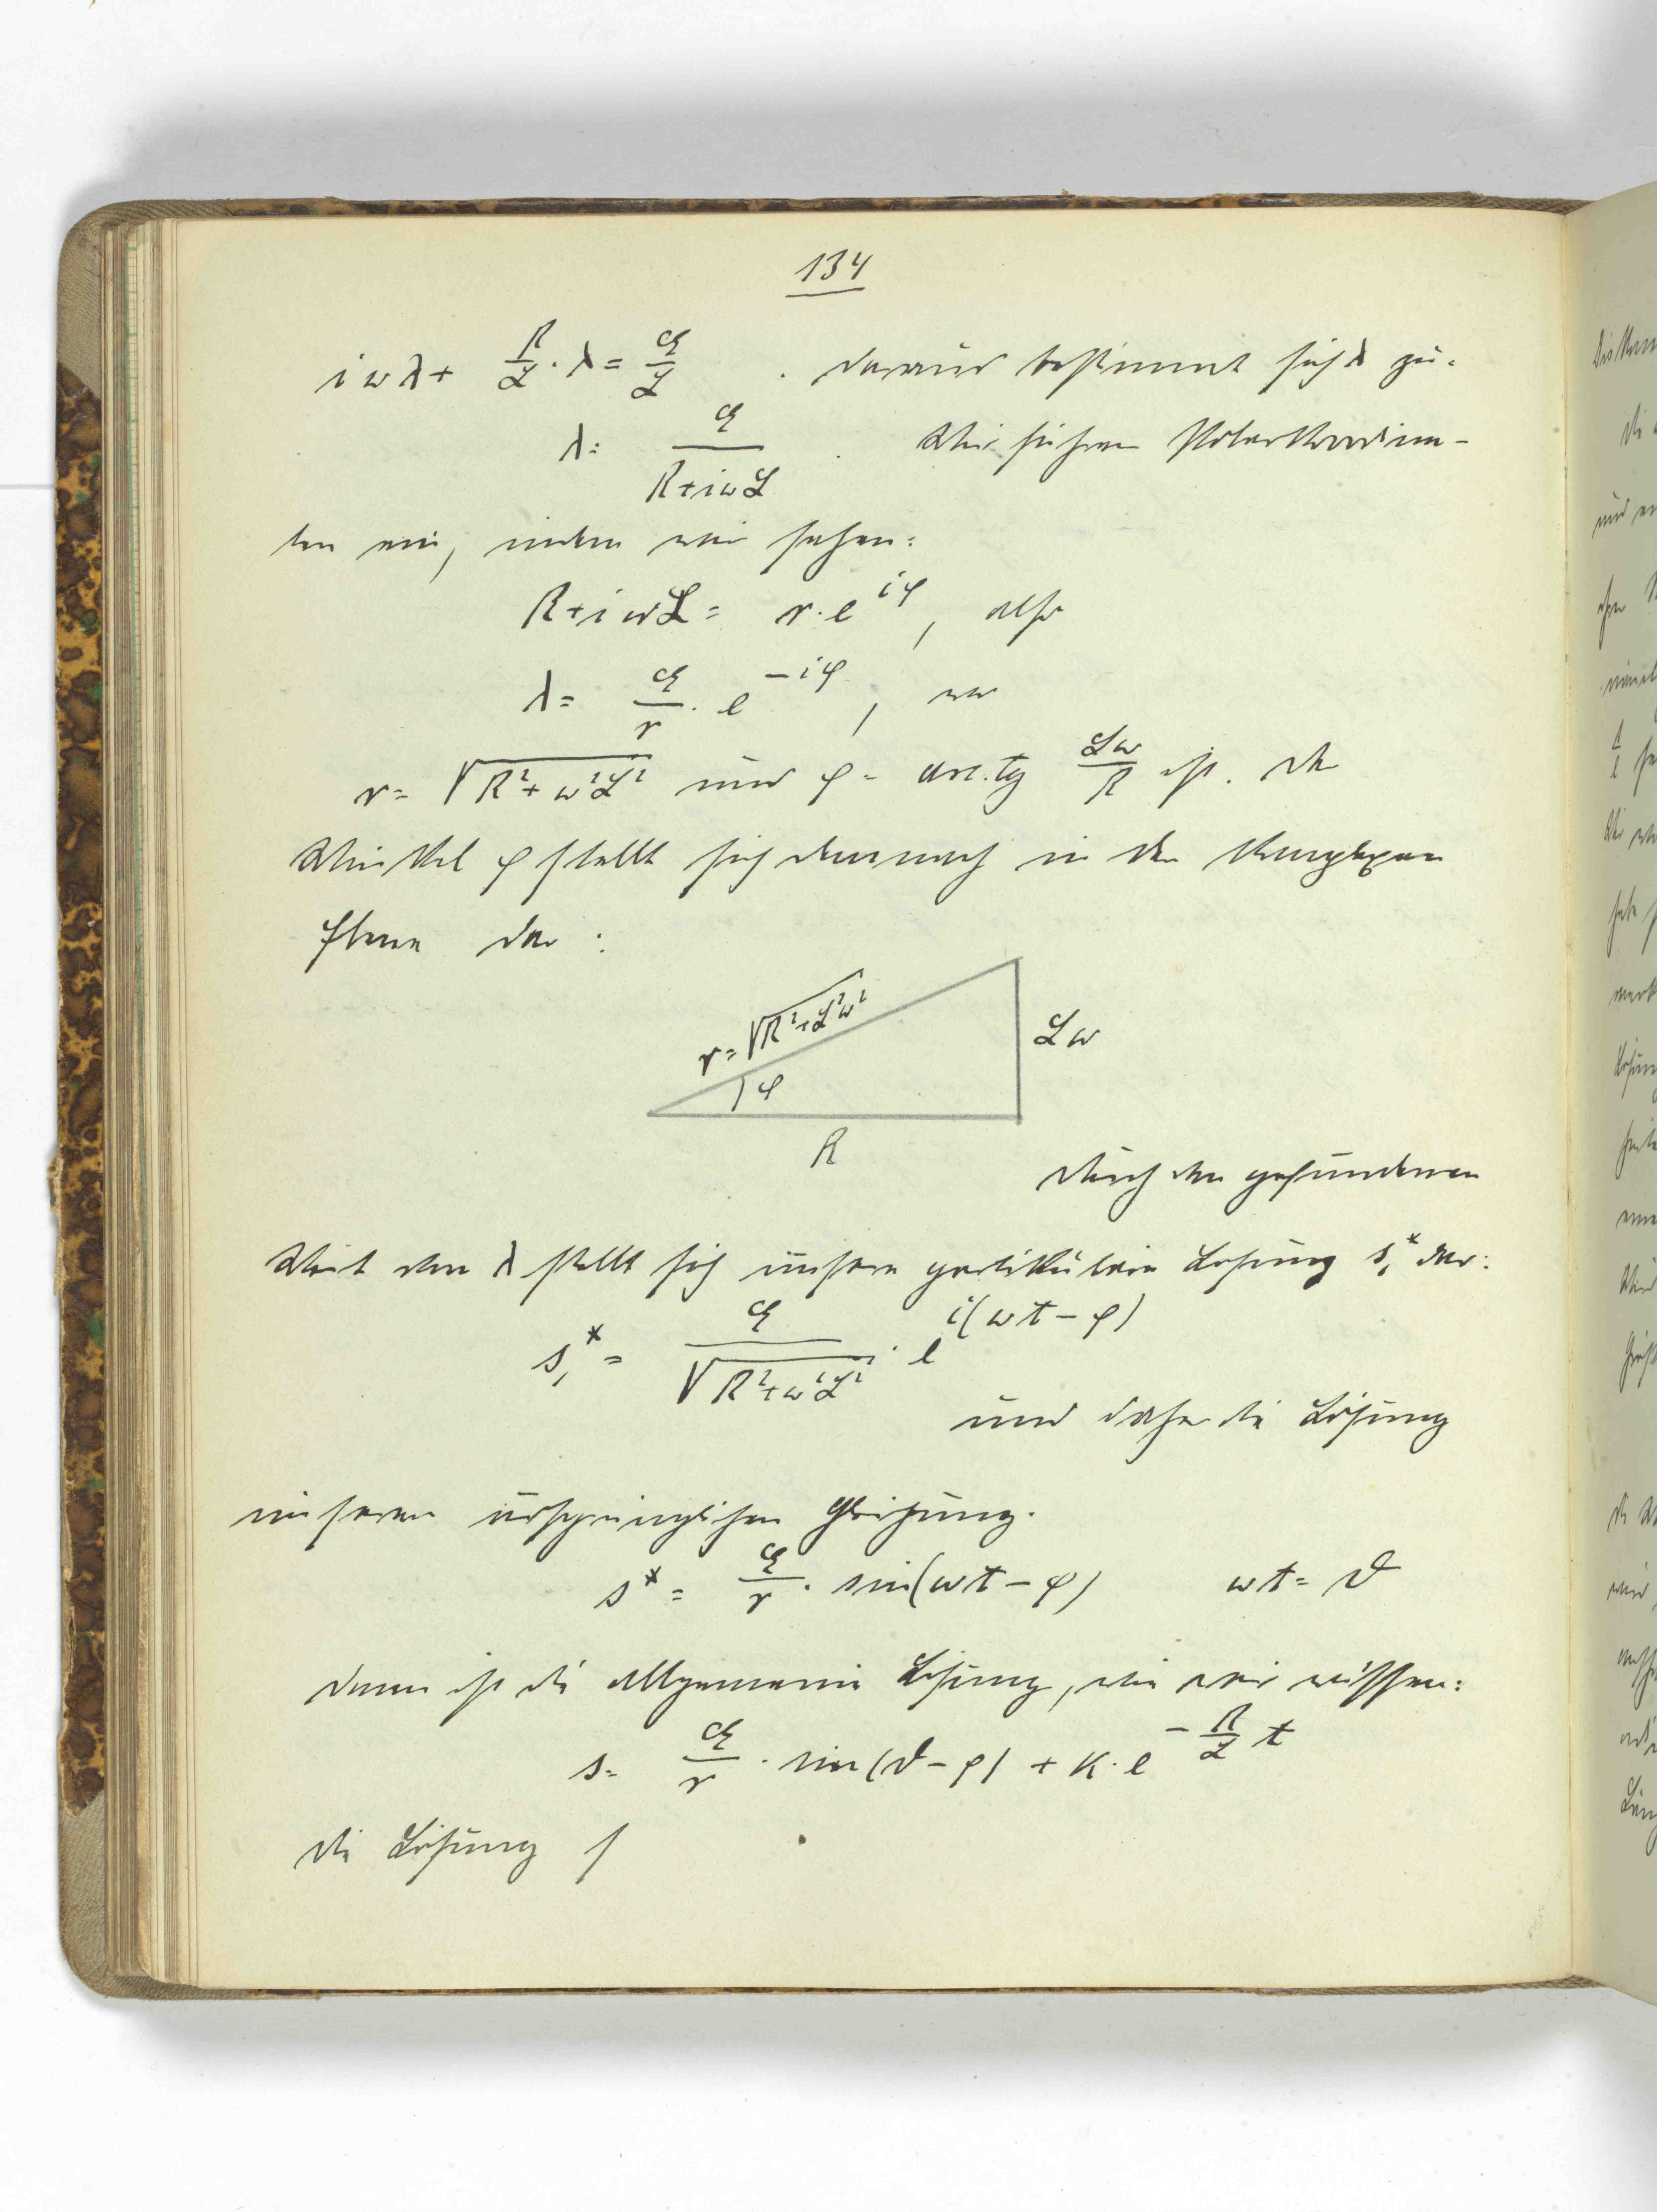 134
iωλ + R/L · λ = E/L . daraus bestimmt sich λ zu:
λ = E/(R+iωL) . Wir führen Polarkoordina-
ten ein, indem wir setzen:
R+iωL = r·e^{iφ}, also
λ = E/r · e^{-iφ}, wo
r = √(R²+ω²L²) und φ = arc.tg Lω/R ist. Der
Winkel φ stellt sich demnach in der komplexen
Ebene dar:
r = √(R²+L²ω²)
Lω
φ
R
durch den gefundenen
Wert von λ stellt sich unsere partikuläre Lösung s₁* dar:
s₁* = E/√(R²+ω²L²) · e^{i(ωt-φ)}
und daher die Lösung
unserer ursprünglichen Gleichung.
s* = E/r · sin(ωt-φ) ωt = ϑ
dann ist die allgemeine Lösung, wie wir wissen:
s = E/r · sin(ϑ-φ) + K·e^{-R/L t}
die Lösung